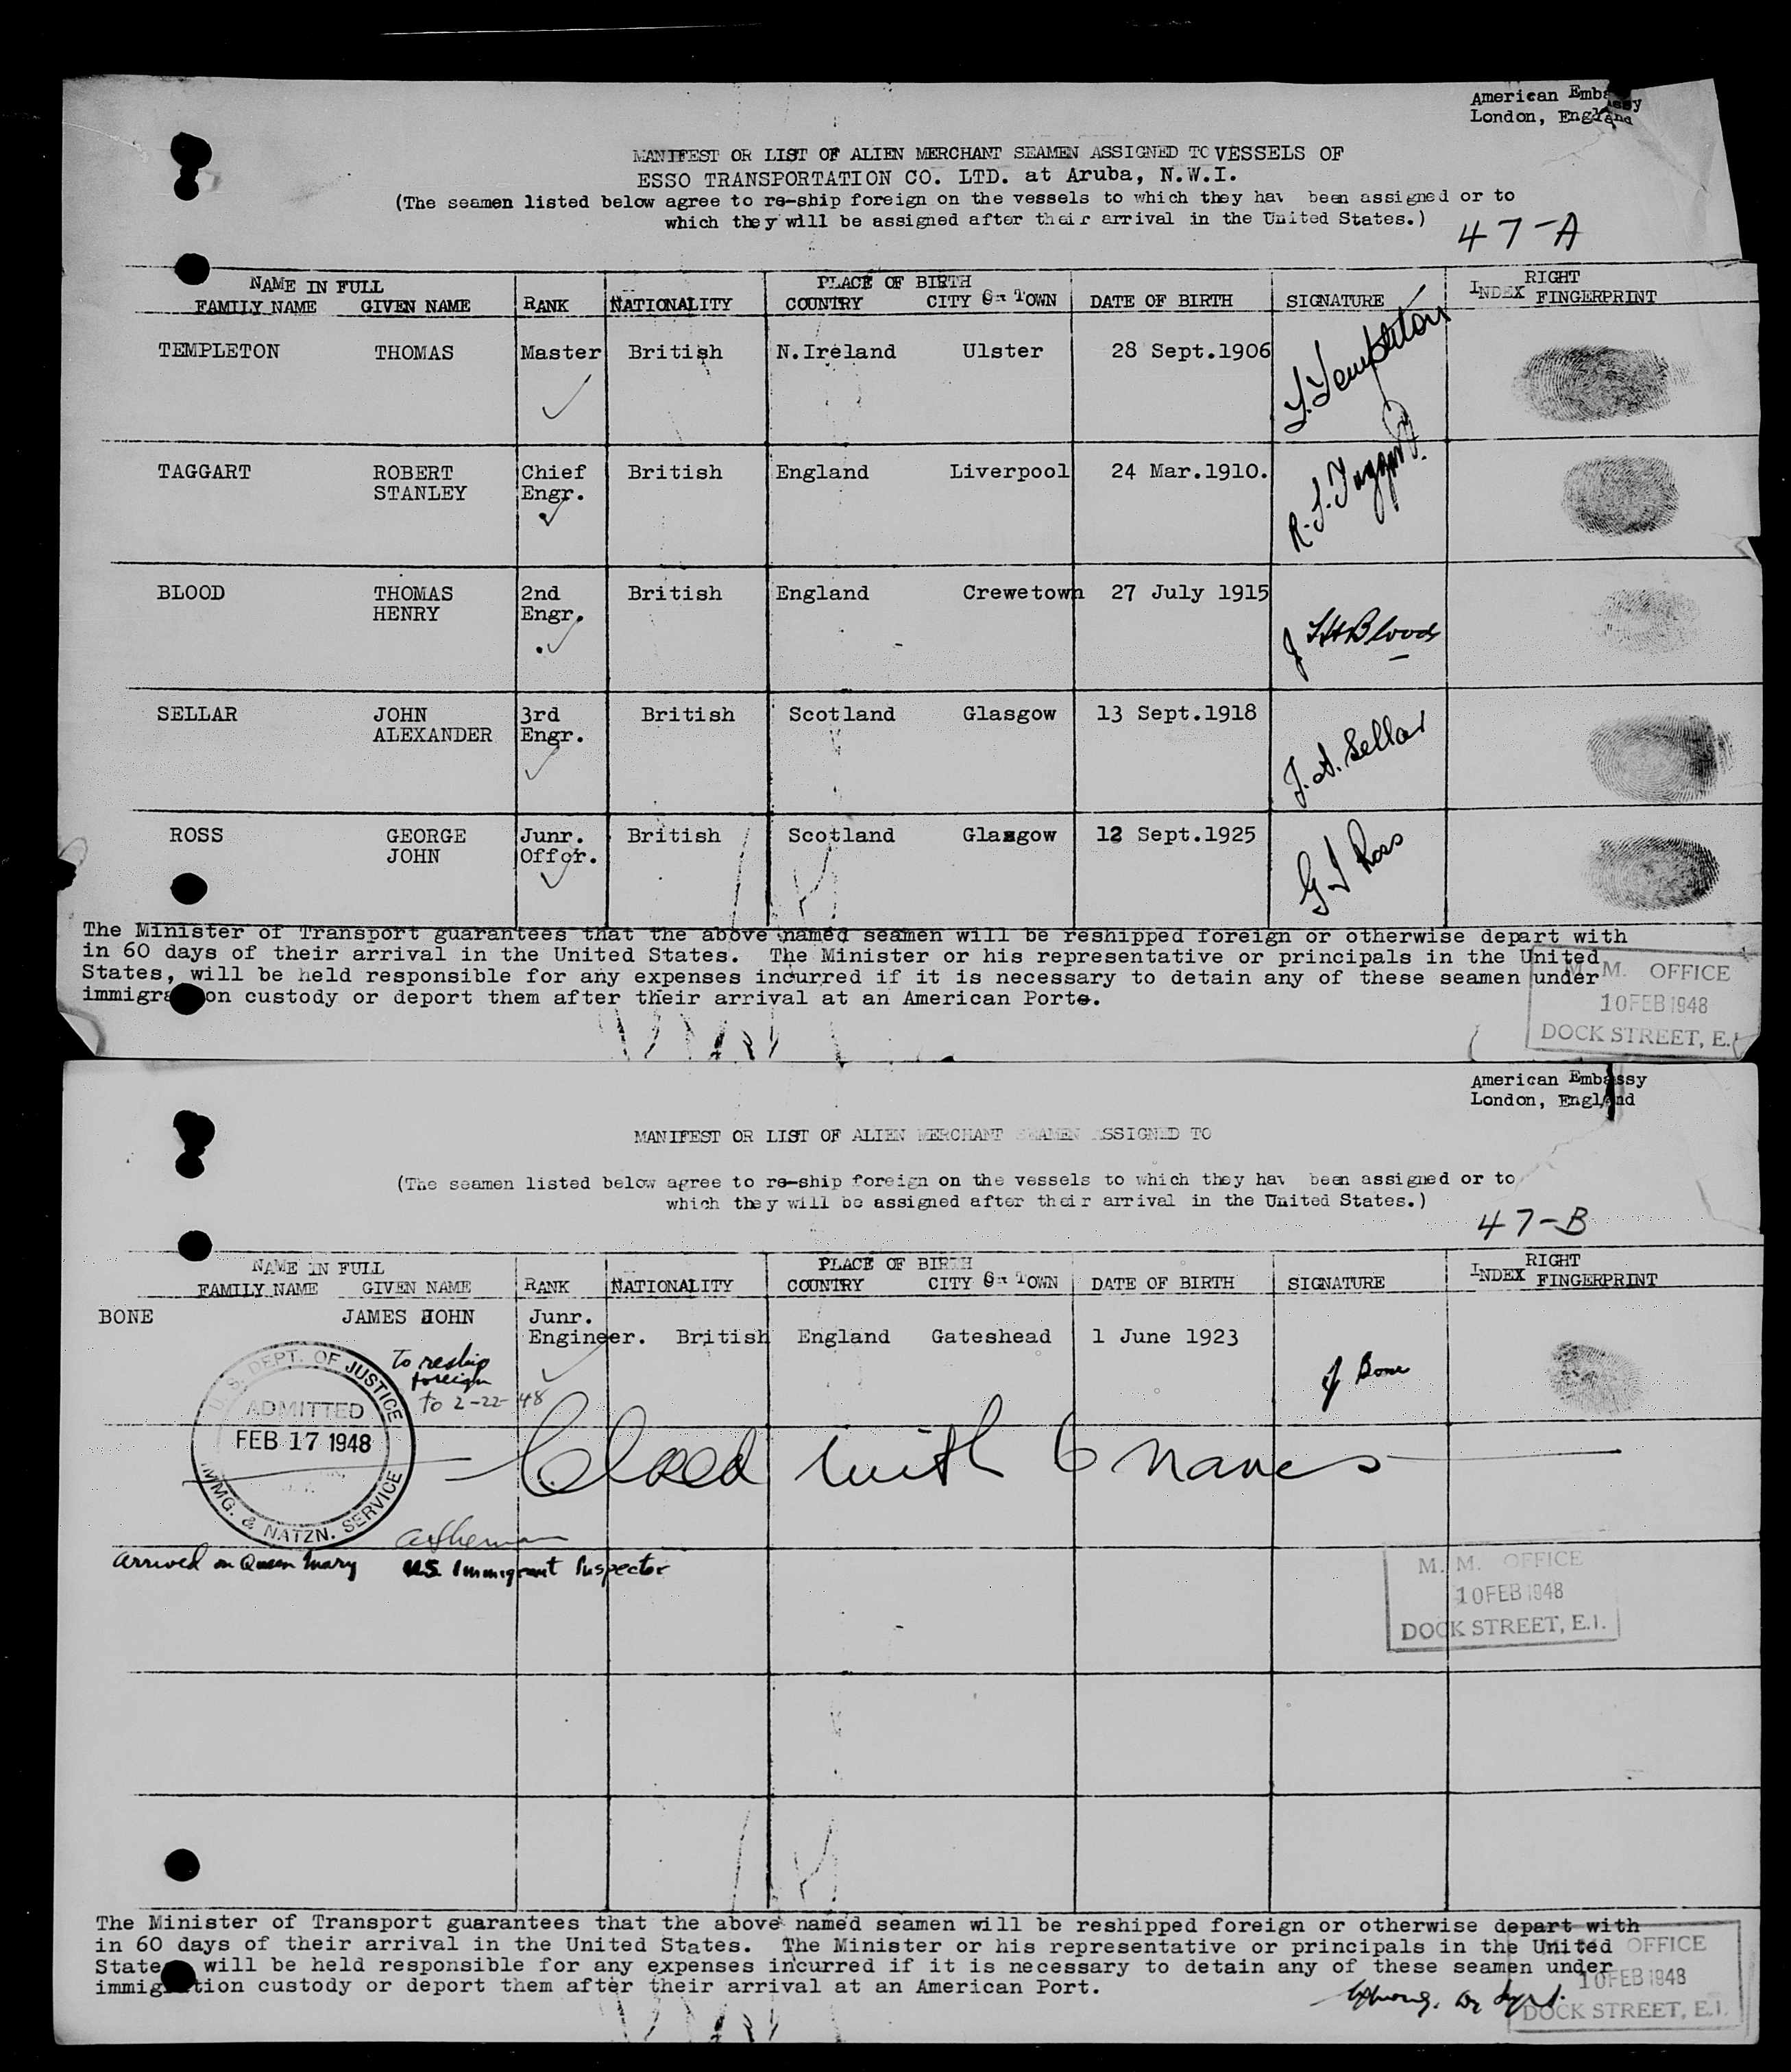 American Embassy
London, England
MANIFEST OR LIST OF ALIEN MERCHANT SEAMEN ASSIGNED TO VESSELS OF
ESSO TRANSPORTATION CO. LTD. at Aruba, N.W.I.
(The seamen listed below agree to re-ship foreign on the vessels to which they hav been assigned or to
which they will be assigned after their arrival in the United States.)
47-A
NAME IN FULL PLACE OF BIRTH RIGHT
FAMILY NAME GIVEN NAME RANK NATIONALITY COUNTRY CITY Or TOWN DATE OF BIRTH SIGNATURE INDEX FINGERPRINT
TEMPLETON THOMAS Master British N.Ireland Ulster 28 Sept.1906 T. Templeton
TAGGART ROBERT Chief British England Liverpool 24 Mar.1910. R.S. Taggart
STANLEY Engr.
BLOOD THOMAS 2nd British England Crewetown 27 July 1915
HENRY Engr. THBlood
SELLAR JOHN 3rd British Scotland Glasgow 13 Sept.1918 J.A. Sellar
ALEXANDER Engr.
ROSS GEORGE Junr. British Scotland Glasgow 12 Sept.1925 G J Ross
JOHN Offcr.
The Minister of Transport guarantees that the above named seamen will be reshipped foreign or otherwise depart with
in 60 days of their arrival in the United States. The Minister or his representative or principals in the United
States, will be held responsible for any expenses incurred if it is necessary to detain any of these seamen under
immigration custody or deport them after their arrival at an American Port.
M. M. OFFICE
10 FEB 1948
DOCK STREET, E.1.
American Embassy
London, England
MANIFEST OR LIST OF ALIEN MERCHANT SEAMEN ASSIGNED TO
(The seamen listed below agree to re-ship foreign on the vessels to which they hav been assigned or to
which they will be assigned after their arrival in the United States.)
47-B
NAME IN FULL PLACE OF BIRTH RIGHT
FAMILY NAME GIVEN NAME RANK NATIONALITY COUNTRY CITY Or TOWN DATE OF BIRTH SIGNATURE INDEX FINGERPRINT
BONE JAMES JOHN Junr.
Engineer. British England Gateshead 1 June 1923
J Bone
To reship
foreign
to 2-22-48
U. S. DEPT. OF JUSTICE
ADMITTED
FEB 17 1948
IMMG. & NATZN. SERVICE
Closed with 6 names
Arrived on Queen Mary U.S. Immigrant Inspector
M. M. OFFICE
10 FEB 1948
DOCK STREET, E.1.
The Minister of Transport guarantees that the above named seamen will be reshipped foreign or otherwise depart with
in 60 days of their arrival in the United States. The Minister or his representative or principals in the United
States will be held responsible for any expenses incurred if it is necessary to detain any of these seamen under
immigration custody or deport them after their arrival at an American Port.
OFFICE
10 FEB 1948
DOCK STREET, E.1.